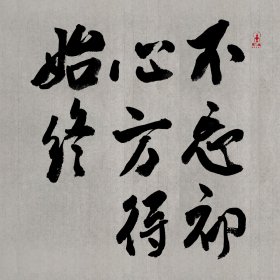 不忘初
心方得
始终